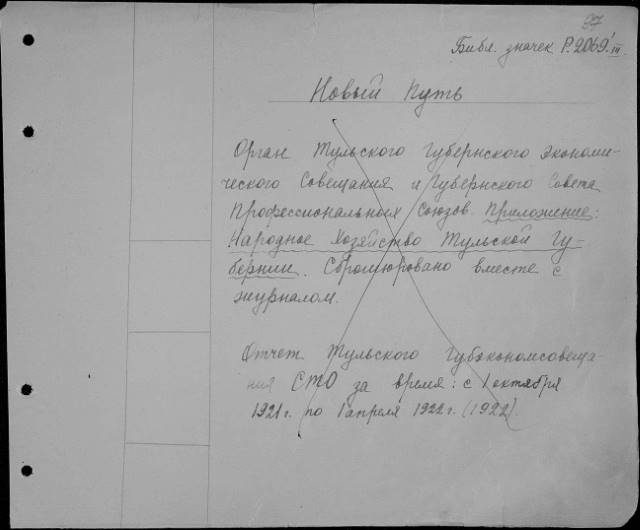 27
Библ. значек Р.2069/III
Новый Путь
Орган Тульского Губернского Экономи-
ческого Совещания и Губернского Совета
Профессиональных Союзов. Приложение:
Народное Хозяйство Тульской Гу-
бернии. Сброшюровано вместе с
журналом.
Отчет Тульского Губэкономсовеща-
ния СТО за время: с 1 октября
1921 г. по 1 апреля 1922 г. (1922).